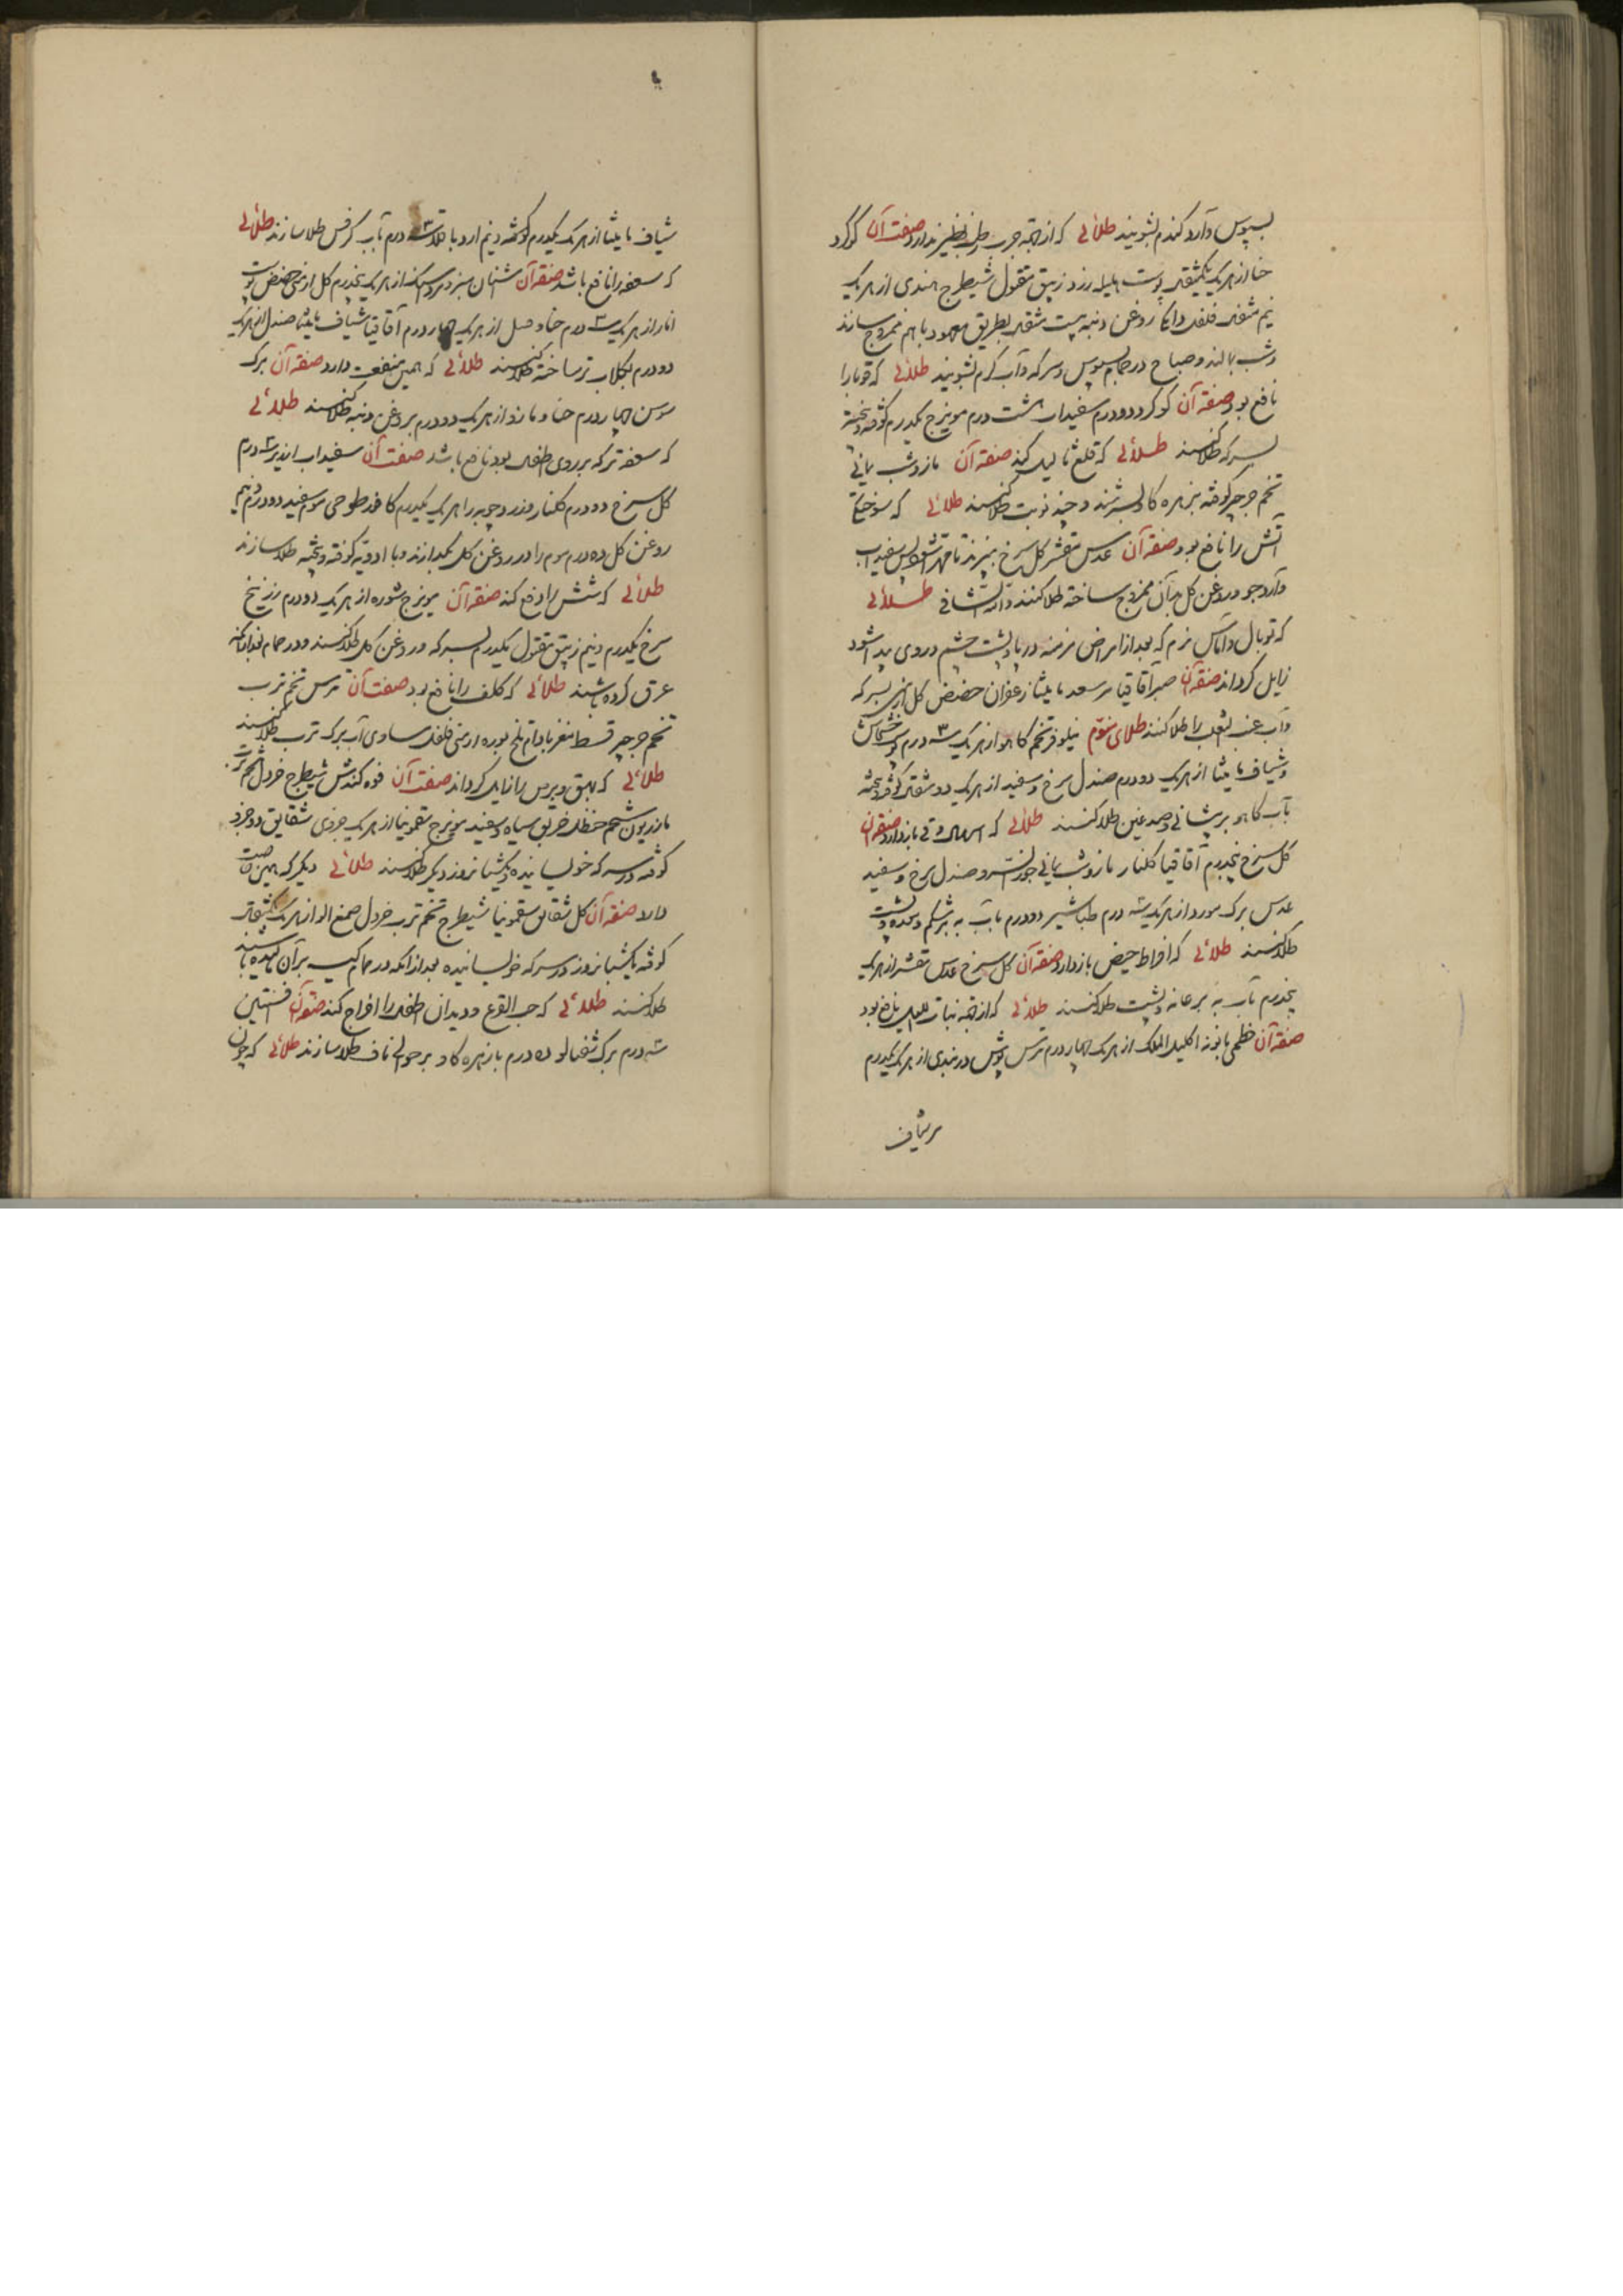 بسپوس و آرد کندم بشویند طلائی که از جهة جرب رطب نظیر ندارد صفت آن کوکرد
حنا از هریک یکمثقال پوست هلیله زرد زیبق مقتول شیطرج هندی از هریک
نیم مثقال فلفل دانکی روغن دنبه بیست مثقال بطریق معهود با هم ممزوج سازند
و شب بمالند و صباح در حمام بسپوس و سرکه و آب کرم بشویند طلائی که قوبا را
نافع بود صفة آن کوکرد دو درم سفیداب هشت درم مویزج یکدرم کوفته و بیخته
بسرکه طلا کنند طلائی که قلع ثالیل کند صفة آن مازو شب یمانی
تخم جرجیر کوفته بزهره کاو بسرشند و چند نوبت طلا کنند طلائی که سوختکی
آتش را نافع بود صفة آن عدس مقشر کل سرخ بپزند تا مهرا شود پس سفیداب
و آرد جو و روغن کل بدان ممزوج ساخته طلا کنند و الله الشافی طلائی
که توبال و اماس نرم که بعد از امراض مزمنه در پا و پشت چشم و روی پیدا شود
زایل کرداند صفة آن صبر آقاقیا مر سعد مامیثا زعفران حضض کل ارمنی بسرکه
و آب عنب الثعلب را طلا کنند طلای منوّم نیلوفر تخم کاهو از هریک سه درم پوست خشخاش
و شیاف مامیثا از هریک دو درم صندل سرخ و سفید از هریک دو مثقال کوفته و بیخته
بآب کاهو بر پیشانی و صدغین طلا کنند طلائی که اسهال و قی باز دارد صفة آن
کل سرخ پنجدرم آقاقیا کلنار مازو شب یمانی جوز السرو صندل سرخ و سفید
عدس برک مورد از هریک سه درم طباشیر دو درم بآب به بر شکم و معده و پشت
طلا کنند طلائی که افراط حیض باز دارد صفة آن کل سرخ عدس مقشر از هریک
پنجدرم بآب به بر عانه و پشت طلا کنند طلائی که از جهة نبات اللیل نافع بود
صفة آن خطمی بابونه اکلیل الملک از هریک چهار درم ترس پوش دربندی از هریک یکدرم
شیاف
شیاف مامیثا از هریک یکدرم کوفته و نیم ارد باقلا سه درم بآب کرفس طلا سازند طلائی
که سعفه را نافع باشد صفة آن اشنان سبز و مرداسنک از هریک پنجدرم کل ارمنی حضض پوست
انار از هریک سه درم حنا و صل از هریک چهار درم آقاقیا شیاف مامیثا صندل از هریک
دو درم بکلاب تر ساخته طلا کنند طلائی که همین منفعت دارد صفة آن برک
سوسن چهار درم حنا و مازو از هریک دو درم بروغن دنبه طلا کنند طلائی
که سعفه تر که بر روی اطفال بود نافع باشد صفت آن سفیداب ارزیر سه درم
کل سرخ دو درم کلنار زرد چوبه را هریک یکدرم کافور طسوجی موم سفید دو درم و نیم
روغن کل ده درم موم را در روغن کل بکدازند و با ادویه کوفته و بیخته طلا سازند
طلائی که شپش را دفع کند صفة آن مویزج شوره از هریک دو درم زرنیخ
سرخ یکدرم و نیم زیبق مقتول یکدرم بسرکه و روغن کل طلا کنند و در حمام بعد از آنکه
عرق کرده باشند طلائی که کلف را نافع بود صفت آن ترمس تخم ترب
تخم جرجیر قسط مغز بادام تلخ بوره ارمنی فلفل مساوی آب برک ترب طلا کنند
طلائی که بهق و برص را زایل کرداند صفت آن فوه کندش شیطرج خردل تخم ترب
مازریون شحم حنظل خربق سیاه و سفید مویزج سقمونیا از هریک جزوی شقایق دو جزو
کوفته در سرکه خوب خیسانیده و یکشبانروز دیکر طلا کنند طلائی دیکر که همین خاصیت
دارد صفة آن کل شقایق سقمونیا شیطرج تخم ترب خردل صمغ الو از هریک یکمثقال
کوفته یکشبانروز در سرکه خیسانیده بعد از آنکه در حمام کیسه بر آن مالیده باشند
طلا کنند طلائی که حب القرع و دیدان اطفال را اخراج کند صفة آن افسنتین
سه درم برک شفتالو ده درم با زهره کاو بر حوالی ناف طلا سازند طلائی که چون